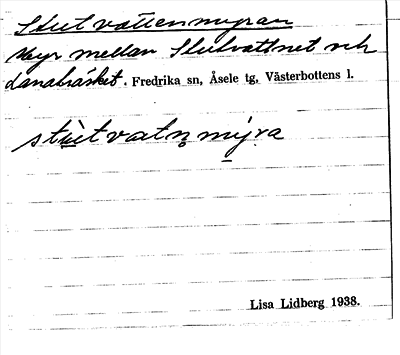 Stutvattenmyran
Myr mellan Stutvattnet och
Lanaträsket. Fredrika sn, Åsele tg. Västerbottens l.
stùtvatn̥mýra
Lisa Lidberg 1938.